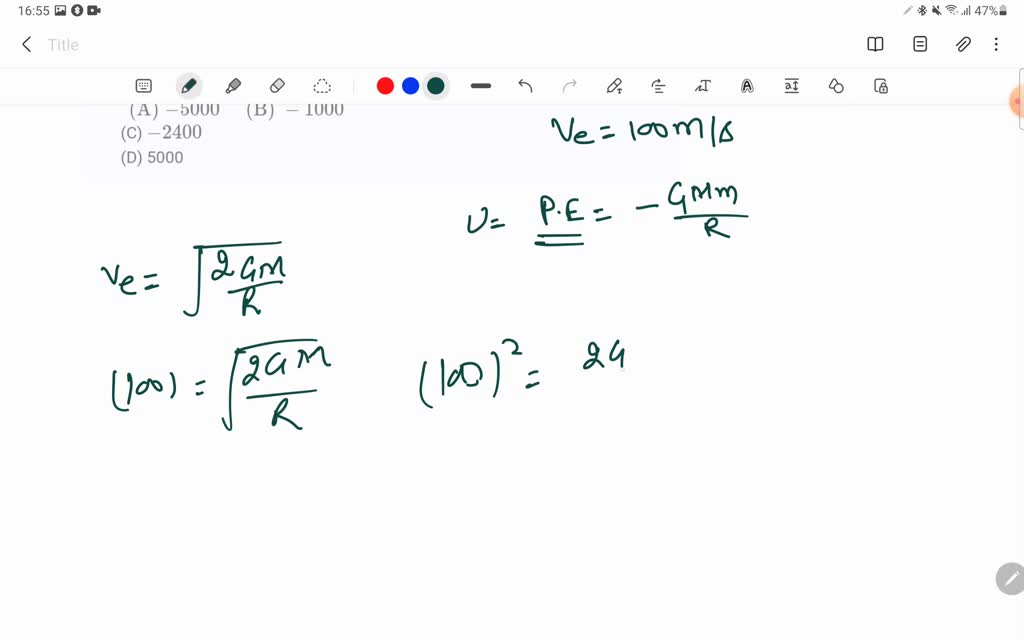 16:55 47%
Title
(A) −5000 (B) − 1000
(C) −2400
(D) 5000
Ve = 100m/s
U = P.E = - GMm/R
Ve = √(2GM/R)
(100) = √(2GM/R) (100)² = 2G